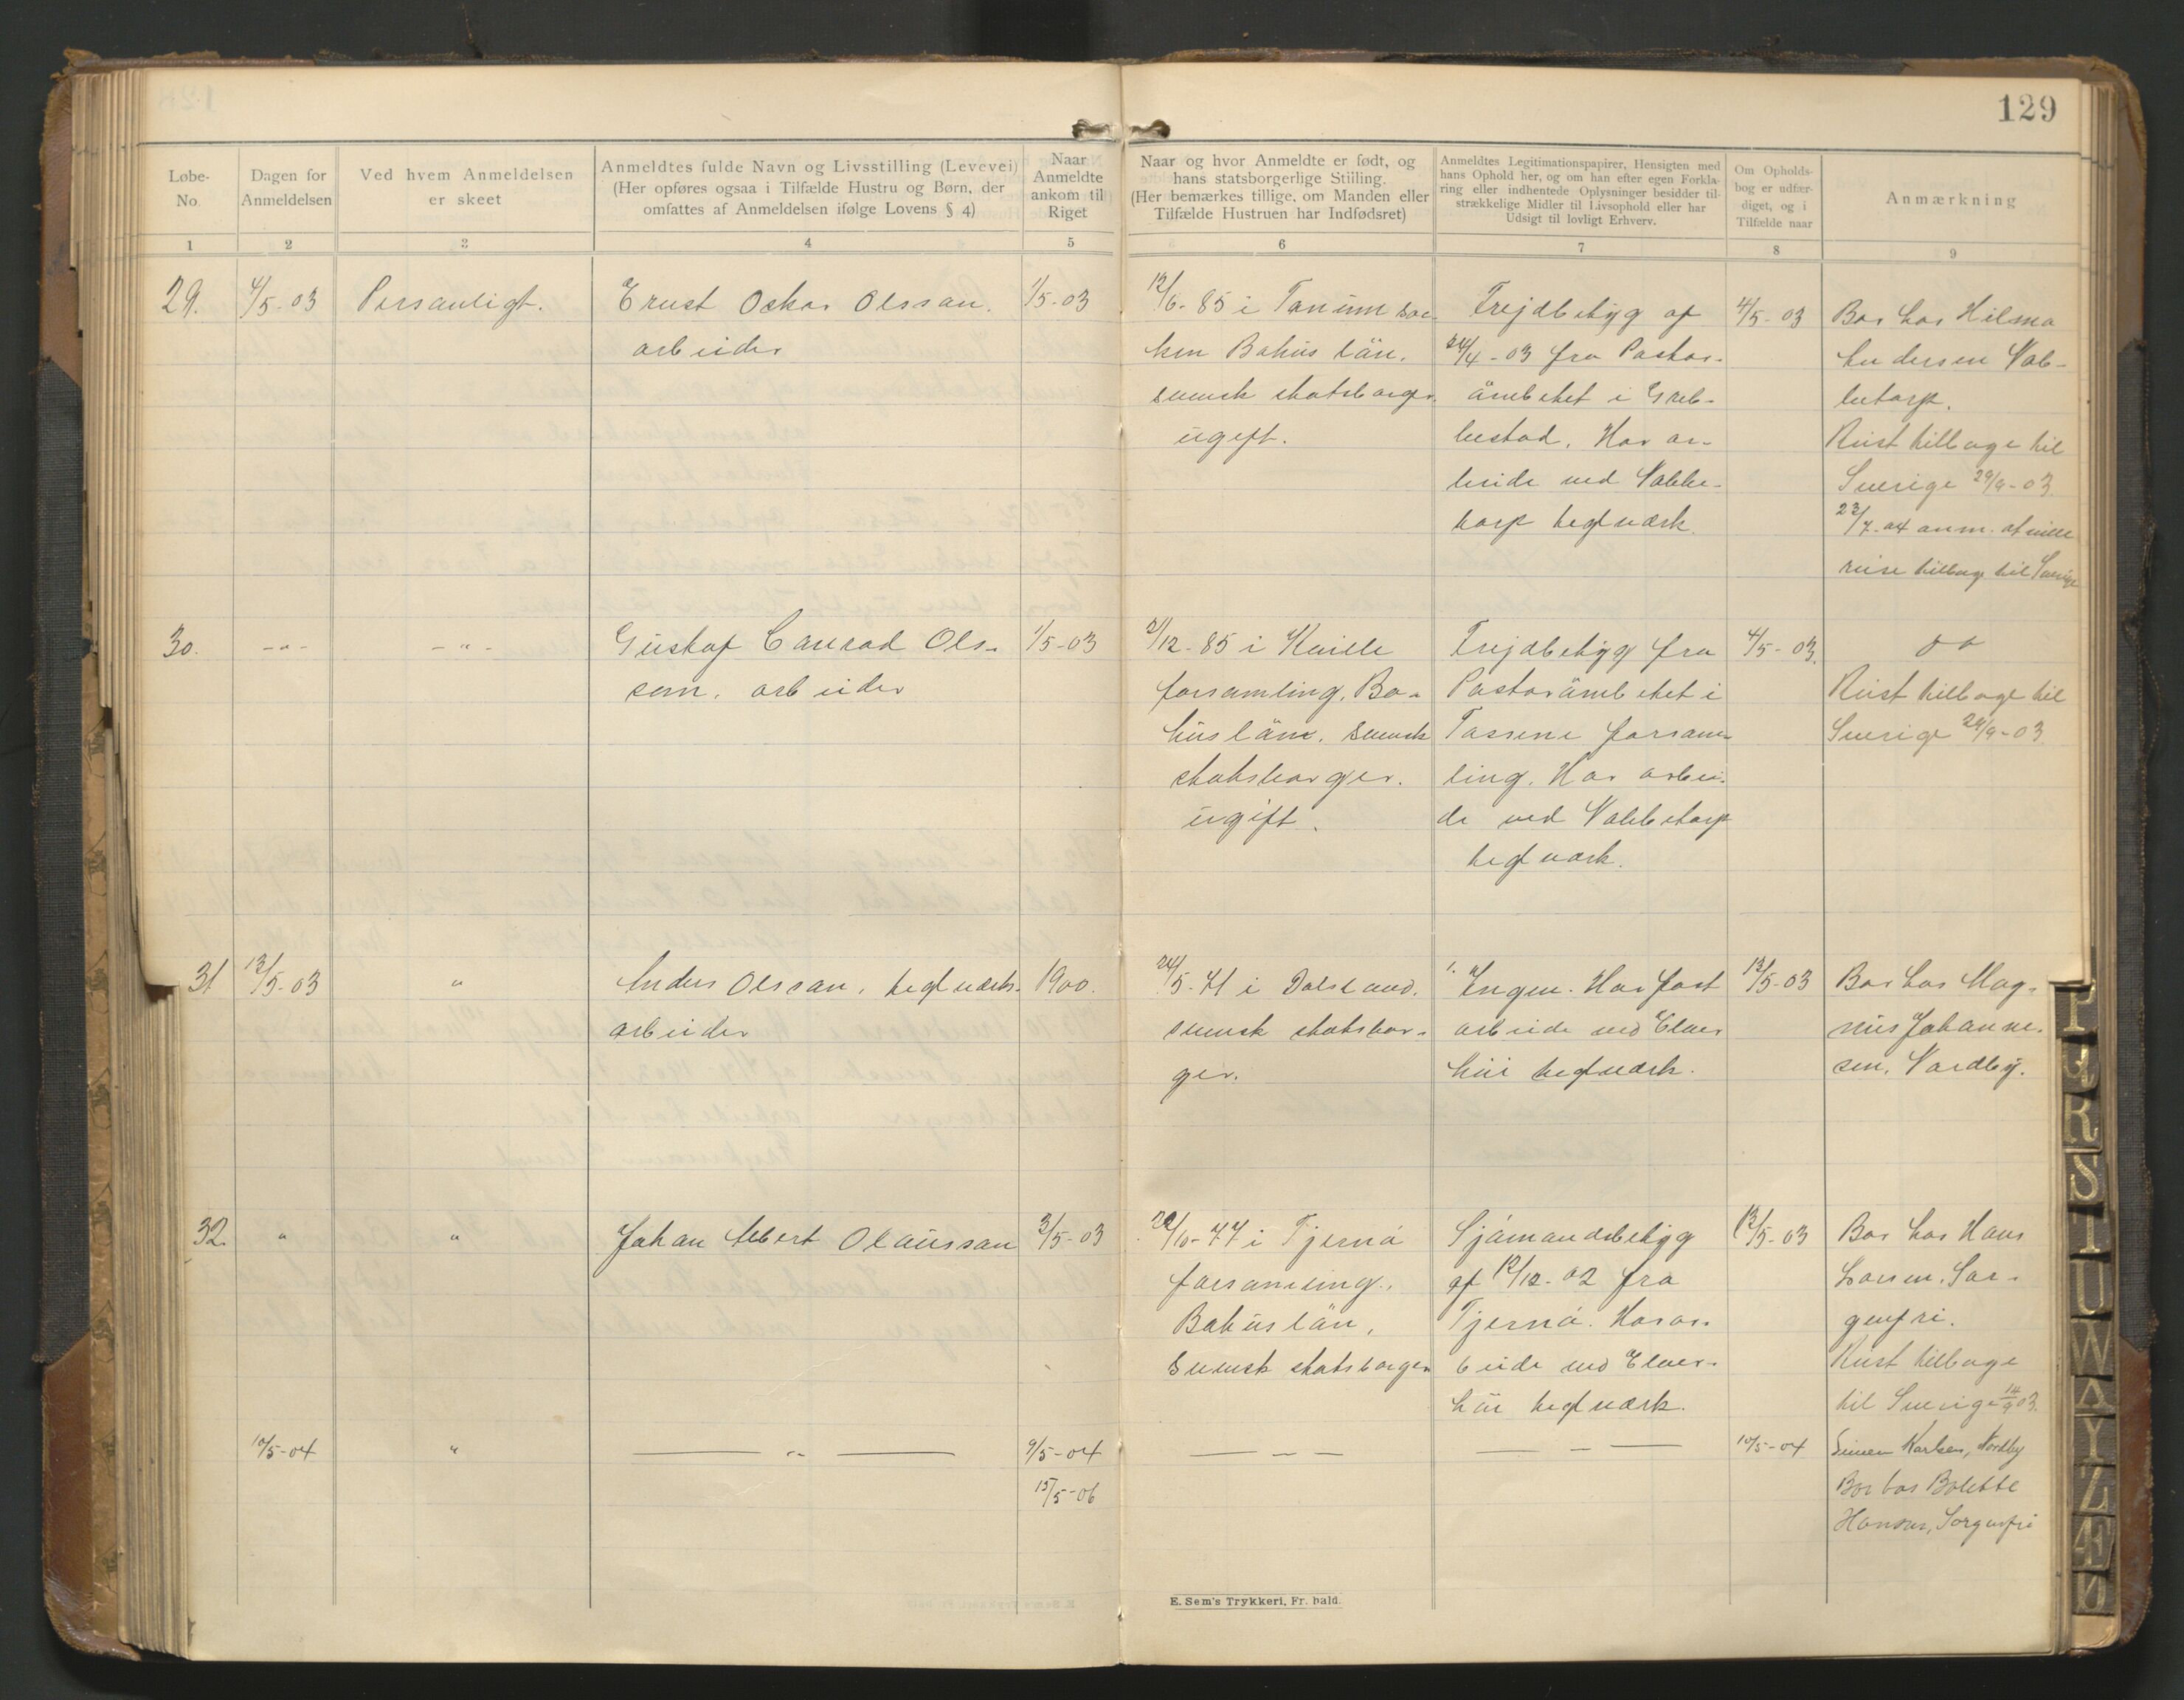 129
Løbe-
No.
Dagen for
Anmeldelsen
Ved hvem Anmeldelsen
er skeet
Anmeldtes fulde Navn og Livsstilling (Levevei)
(Her opføres ogsaa i Tilfælde Hustru og Børn, der
omfattes af Anmeldelsen ifølge Lovens § 4)
Naar
Anmeldte
ankom til
Riget
Naar og hvor Anmeldte er født, og
hans statsborgerlige Stilling.
(Her bemærkes tillige, om Manden eller
Tilfælde Hustruen har Indfødsret)
Anmeldtes Legitimationspapirer, Hensigten med
hans Ophold her, og om han efter egen Forkla-
ring eller indhentede Oplysninger besidder til-
strækkelige Midler til Livsophold eller har
Udsigt til lovligt Erhverv.
Om Opholds-
bog er udfær-
diget, og i
Tilfælde naar
Anmærkning
1 2 3 4 5 6 7 8 9
29.
4/5-03
Personligt.
Ernst Oskar Olsson.
arbeider
1/5-03
12/6-85 i Tanum soc-
ken Bohus län.
svensk statsborger
ugift.
Frejdbetyg af
24/4-03 fra Pastor-
ämbetet i Greb-
bestad. Har ar-
beide ved
torp teglværk.
4/5-03
Bor hos Hilma
Andersen
letorp.
Reist tilbage til
Sverige 29/9-03
23/7-04 anm. at ville
reise tilbage til Sverige
30.
-"-
-"-
Gustaf Conrad Ols-
son. arbeider
1/5-03
2/12-85 i Kville
forsamling. Bo-
huslän. svensk
statsborger.
ugift.
Frejdbetyg fra
Pastorämbetet i
Tossene forsam-
ling. Har arbei-
de ved
teglværk.
4/5-03.
Reist tilbage til
Sverige 29/9-03
31
12/5-03
"
Anders Olsson, teglværks-
arbeider
1900.
24/5-71 i Dalsland.
svensk statsbor-
ger.
Ingen. Har fast
arbeide ved Elver-
høi teglværk.
12/5-03
Bor hos Mag-
nus Johanne-
sen, Nordby.
32.
"
"
Johan Albert Olausson
3/5-03
29/10-77 i Tjernö
forsamling.,
Bohuslän,
Svensk statsborger
Sjömandsbetyg
af 12/12-02 fra
Tjernö. Har ar-
beide ved Elver-
høi teglværk.
12/5-03
Bor hos Hans
Larsen. Sor-
genfri.
Reist tilbage
til Sverige 14/9 03.
10/5-04
"
— " —
9/5-04
— - —
— - —
10/5-04
Simen Karlsen, Nordby
15/5-06
Bor hos Bolette
Hansen, Sorgenfri
E. Sem's Trykkeri, Fr. hald.
P
Q
R
S
T
U
W
A
Y
Z
Æ
Ø